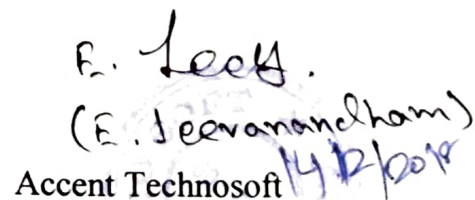 E. Jeeva.
(E. Jeevanandham)
Accent Technosoft 14/12/2018